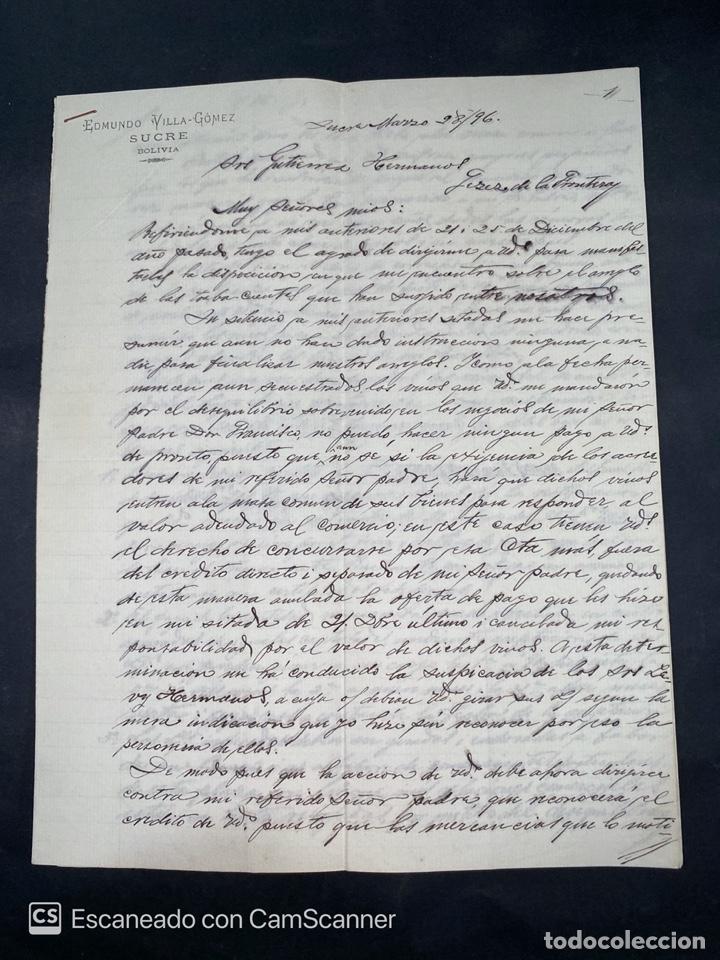 1
EDMUNDO VILLA-GÓMEZ
SUCRE
BOLIVIA
Sucre Marzo 28/96.
Sres Gutierrez Hermanos
Jerez de la Frontera
Muy Señores mios:
Refiriendome a mis anteriores de 21 i 25 de Diciembre del
año pasado, tengo el agrado de dirigirme a Uds. para manifes
tarles la disposicion en que me encuentro sobre el arreglo
de las cuentas que han surgido entre nosotros.
Su silencio a mis anteriores sitadas me hace pre-
sumir que aun no han dado instruccion ninguna, a na-
die para finalizar nuestros arreglos. I como a la fecha per-
manecen aun secuestrados los vinos que Uds. me mandaron
por el desequilibrio sobrevenido en los negocios de mi Señor
padre Don Francisco, no puedo hacer ningun pago a Uds.
de pronto, puesto que aun no se si la exigencia de los acree-
dores de mi referido Señor padre, hará que dichos vinos
entren a la masa comun de sus bienes para responder al
valor adeudado al comercio; en este caso tienen Uds.
el derecho de concursarse por esta Cta mas, fuera
del credito directo i separado de mi Señor padre, quedando
de esta manera anulada la oferta de pago que les hize
en mi sitada de 21 Dbre último i cancelada mi res-
ponsabilidad por el valor de dichos vinos. A esta deter-
minacion me há conducido la suspicacia de los Sres Le-
vy Hermanos, a cuya o/ debian Uds. girar sus L/ segun la
mera indicacion que yo hize sin reconocer por eso la
personeria de ellos.
De modo pues que la accion de Uds. debe ahora dirigirce
contra mi referido Señor padre, que reconocerá el
credito de Uds. puesto que las mercancias que lo moti-
CS Escaneado con CamScanner
todocoleccion